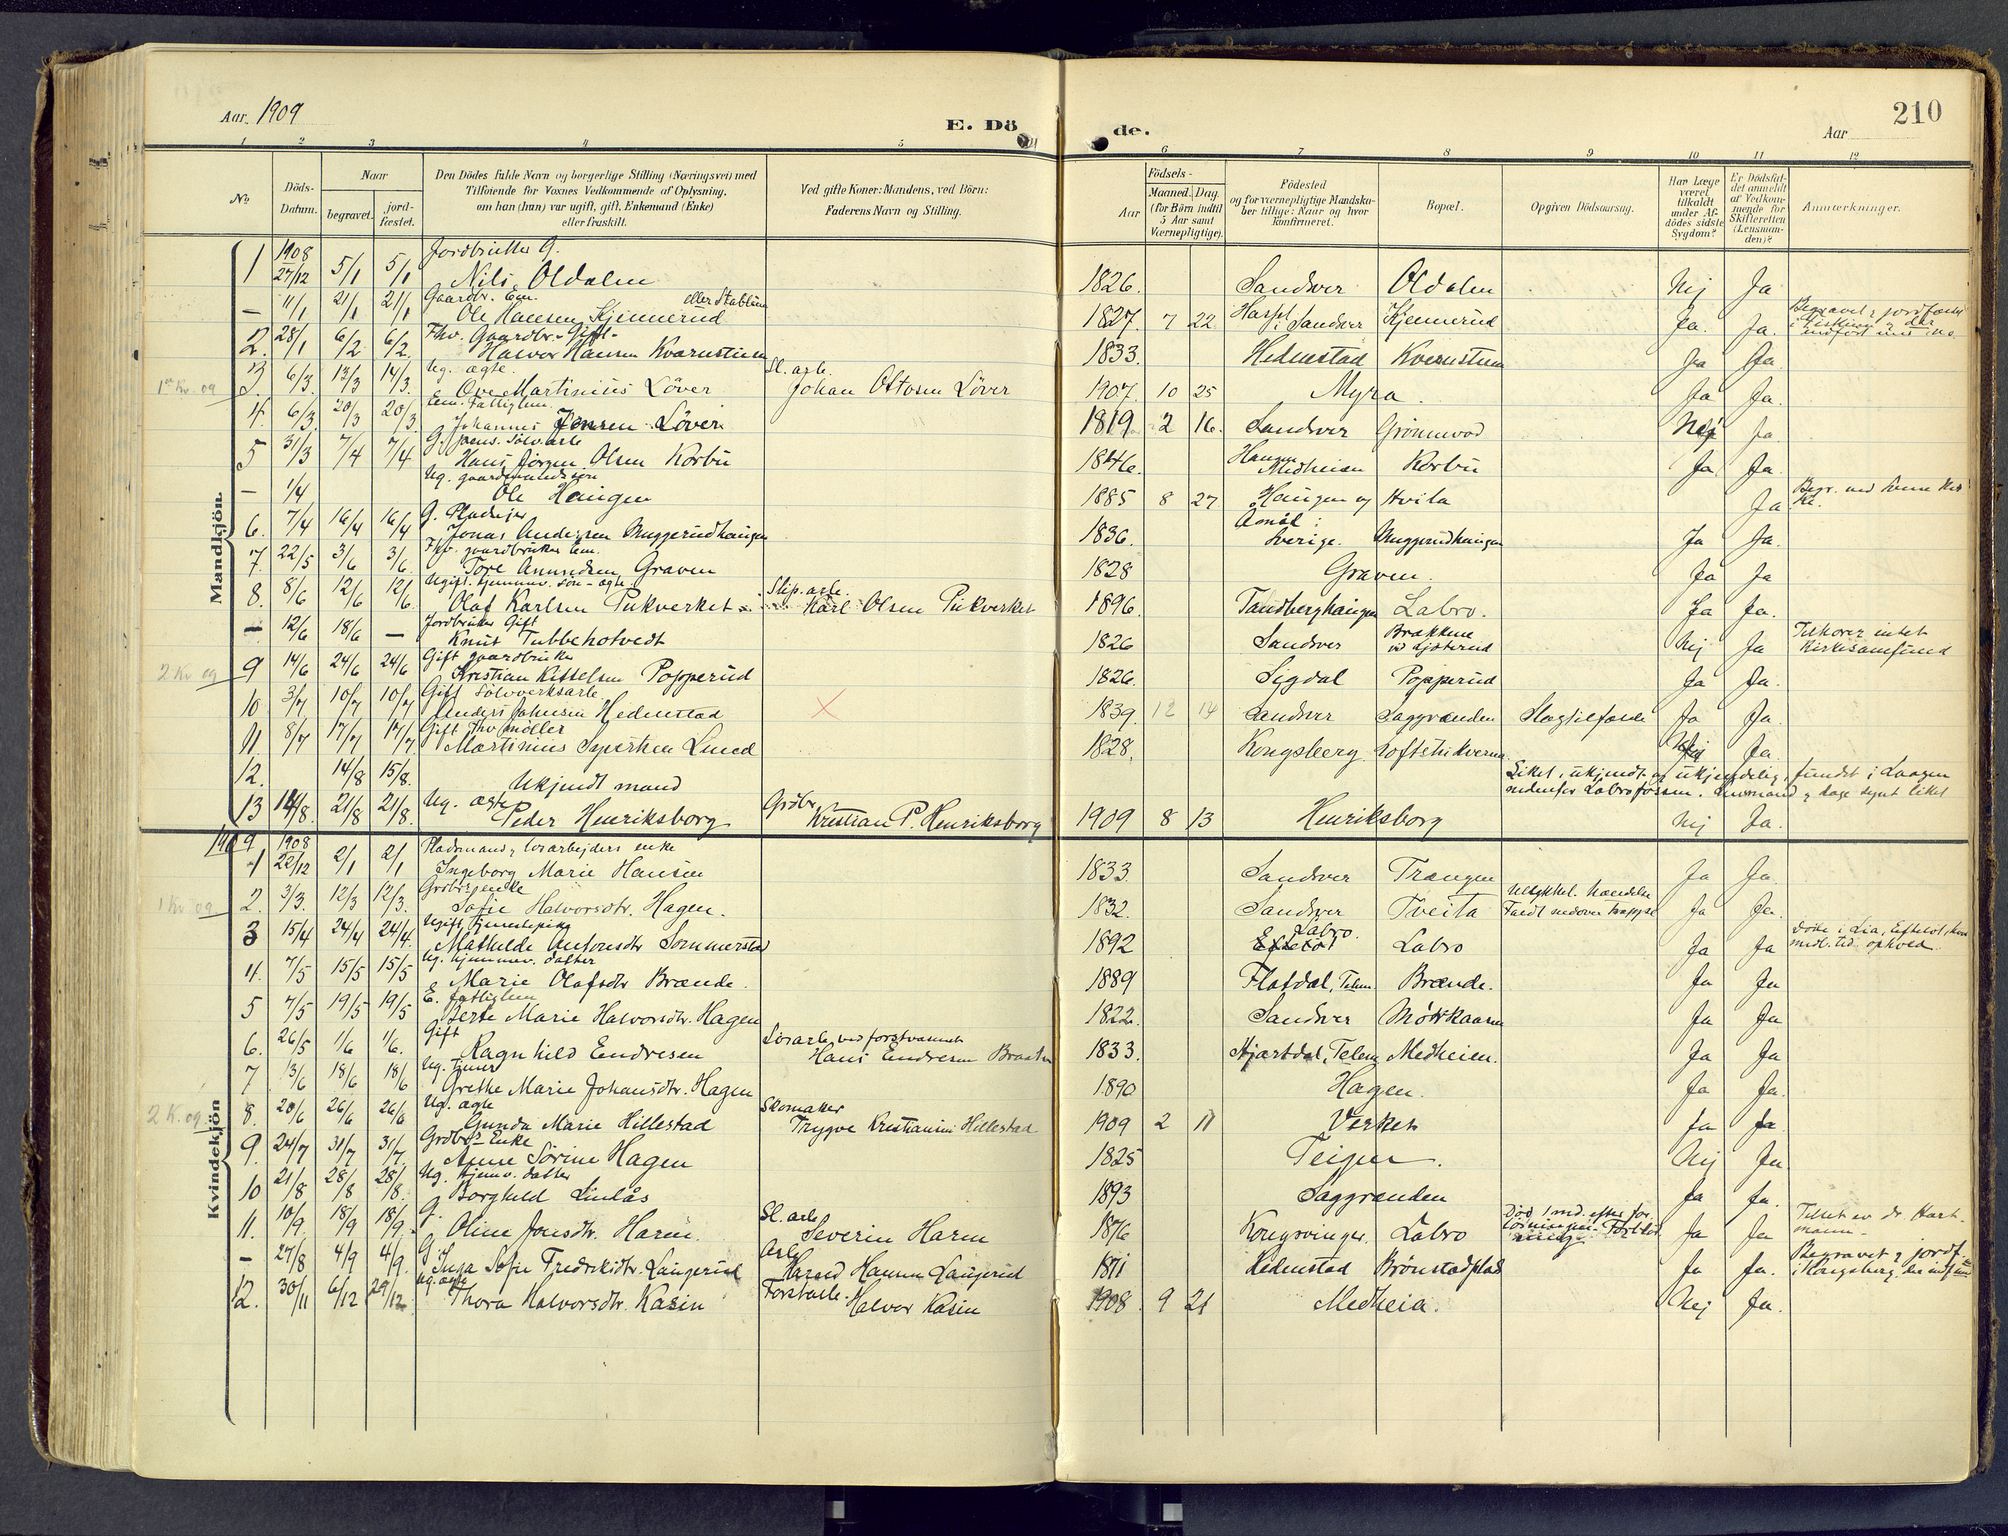 Aar 1909
E. Döde.
Aar
210
1 2 3 4 5 6 7 8 9 10 11 12
No.
Döds-Datum.
Naar
begravet.
jord-fæstet.
Den Dödes fulde Navn og borgerlige Stilling (Næringsvei) med
Tilföiende för Voxnes Vedkommende af Oplysning.
om han (hun) var ugift, gift, Enkemand (Enke)
eller fraskilt.
Ved gifte Koner: Mandens, ved Börn:
Faderens Navn og Stilling.
Födsels-
Aar
Maaned. Dag.
(for Börn indtil
5 Aar samt
Værnepligtige).
Födested
og for værnepligtige Mandska-
ber tillige: Naar og hvor
konfirmeret.
Bopæl.
Opgiven Dödsaarsag.
Har Læge
været
tilkaldt
under Af-
dödes sidste
Sygdom?
Er Dödsfal-
det anmeldt
af Vedkom-
mende for
Skifteretten
(Lensman-
den)?
Anmærkninger.
Mandkjön.
1 1908 27/12 5/1 5/1 Jordbruker G. Nils Oldalen 1826. Sandsver Oldalen Nej Ja
— 11/1 21/1 21/1 Gaardbr. Em. eller Stablum
Ole Hansen Kjennerud 1827. 7 22. i Sandsver Kjennerud Ja. Ja. Begravet & jordfæstet
2. 28/1 6/2 6/2. Fhv. Gaardbr. Gift
Halvor Hansen Kvernstuen 1833. Hedenstad Kvernstuen Ja Ja.
1ste Kv. og
3. 6/3. 13/3 14/3. Ug. ægte. Ove Martinius Löver Sl. arb. Johan Ottosen Löver 1907. 10 25 Myra. Ja Ja.
4. 6/3. 20/3 20/3. Em. Fattiglem. Johannes Jensen Löver. 1819 2 16. Sandsver Grönnvod Nej Ja.
5 31/3 7/4 7/4 G. pens. Sölvarb. Hans Jörgen Olsen Korbu 1846. Haugen Medheien Korbu Ja. Ja.
— 1/4 Ug. gaardmandssön Ole Haugen 1885 8 27 Haugen og Hvila Ja Begr. ved Svene Kirke.
6. 7/4 16/4 16/4 G. Pladsejer Jonas Andersen Muggerudhaugen 1836. Åmål i Sverige. Muggerudhaugen Ja Ja.
7 22/5 3/6 3/6 Fhv. gaardbruker Em. Tore Amundsen Graven 1828 Graven. Ja Ja
8. 8/6 12/6 12/6 Ugift. hjemmev. sön - ægte. Olaf Karlsen Pukverket Slip. arb. Karl Olsen Pukverket 1896. Tandberghaugen Labro. Ja Ja.
— 12/6 18/6 — Jordbruker Gift Knut Tubbehotvedt 1826 Sandsver Brækkene Nej Ja Tilhörer intet Kirkesamfund
2 Kv og
9 14/6 24/6 24/6 Gift gaardbruker Kristian Kittelsen Popperud 1826. Sigdal Popperud Ja Ja.
10 3/7 10/7 10/7 Gift Sölvverksarb. Anders Johnsen Hedenstad 1839. 12 14 Sandsver Saggranden Slagtilfælde Ja Ja.
11 8/7 17/7 17/7 Gift Fhv möller Martinius Syvertsen Lund 1828. Kongsberg Toftstukverna Nej Ja.
12. 14/8 15/8. Ukjendt mand Liket, ukjendt og ukjendelig, fundet i Laagen
nedenfor Labrofossen. Lensmand & læge synt liket
13 14/8. 21/8 21/8. Ug. ægte Peder Henriksborg Grdbr. Kristian P. Henriksborg 1909 8 13 Henriksborg Nej Ja.
Kvindekjön
1909
1 1908 22/12 2/1 2/1 Pladsmand & lösarbejders enke Ingeborg Marie Hansen 1833. Sandsver Trangen Ja Ja.
1 Kv og
2. 3/3. 12/3 12/3. Grdbrs enke Sofie Halvorsdtr. Hagen. 1832. Sandsver Tveita Ulykkel. hændelse Faldt nedover trappe Ja Ja.
3 15/4 24/4 24/4. Ugift tjenestepike Mathilde Antonsdtr Sommerstad 1892 Labro. Labro Ja Ja Döde i Lia, Efteløt, hvor midl. tid. ophold.
4. 7/5 15/5 15/5 Ug. hjemmev. datter Marie Olafsdtr Brænde. 1889 Flatdal, Telem Brænde. Ja Ja
5 7/5 19/5 19/5 E. fattiglem Berte Marie Halvorsdtr. Hagen 1822. Sandsver Mörkaasen Ja Ja
6. 26/5 1/6 1/6. Gift Ragnhild Endresen Lösarb. ved forstvæsenet Hans Endresen Braaten 1833. Hjartdal, Telem Medheien. Ja Ja
7 13/6 18/6 18/6 Ug. Grethe Marie Johansdtr. Hagen 1890. Hagen. Ja Ja
2 K. og
8. 20/6 26/6 26/6 Ug. ægte Gunda Marie Hillestad Skomaker Trygve Kristiansen Hillestad 1909 2 11 Verket Ja Ja
9. 24/7 31/7 31/7. Grdbrs Enke Anne Sörine Hagen 1825 Teigen. Nej Ja
10 21/8 28/8 28/8. Ug. hjemv. datter Borghild Linlås 1893 Saggranden Ja Ja.
11. 10/9. 18/9 18/9. G. Oline Jonsdtr. Haren. Sl. arb. Severin Haren 1876 Kongsvinger. Labro Död 1 md. efter for-
lösningen. Ja Ja Tilset av dr. Hart-
mann.
— 27/8 4/9 4/9. G. Inga Sofie Fredrikdtr. Langerud Arb. Harald Hansen Langerud 1871 Hedenstad Brönstadplads Ja Ja. Begravet & jordf.
i Kongsberg
12. 30/11 6/12 29/12 ug. ægte Thora Halvorsdtr. Kasin Forstarb. Halvor Kasin 1908 9 21 Medheia. Nej Ja.